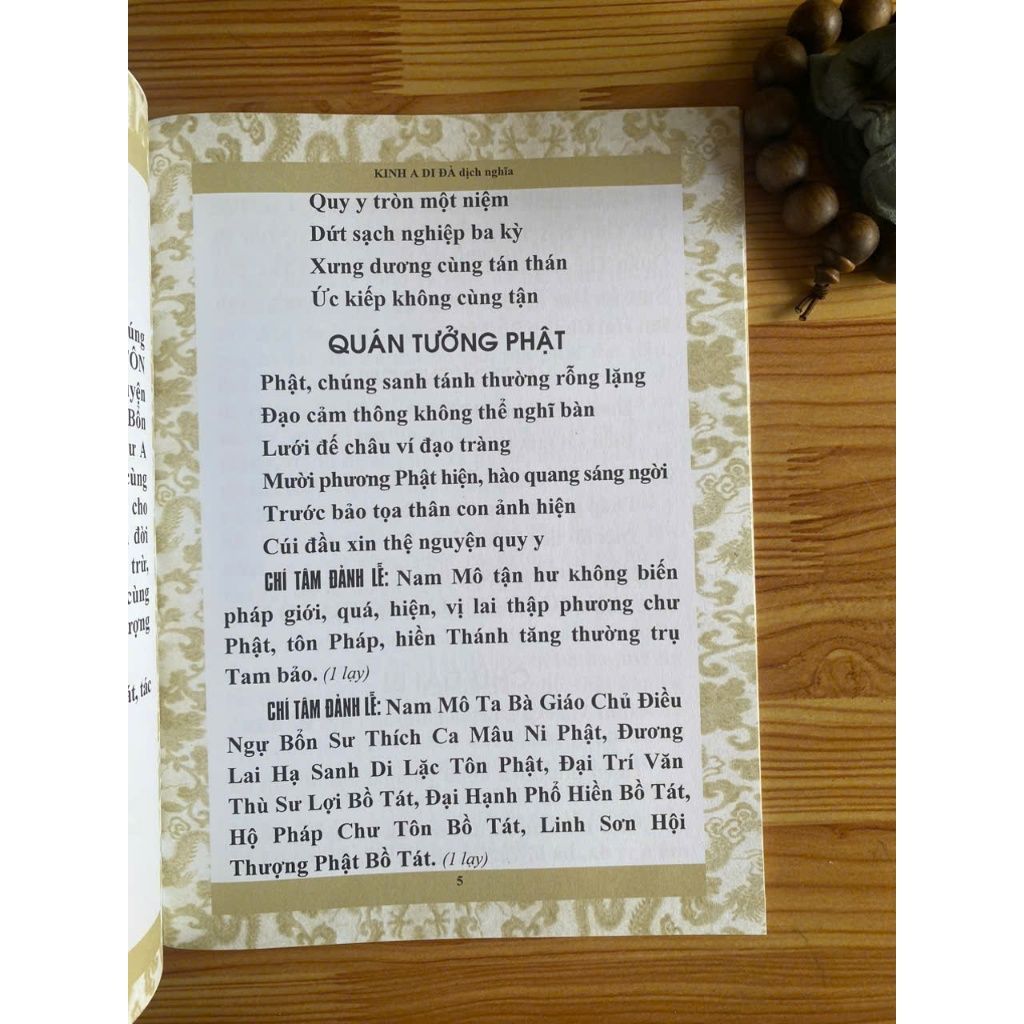 úng
ÔN
yện
Bổn
ư A
cùng
cho
đời
trừ,
cùng
rợng
át, tác
KINH A DI ĐÀ dịch nghĩa
Quy y tròn một niệm
Dứt sạch nghiệp ba kỳ
Xưng dương cùng tán thán
Ức kiếp không cùng tận
QUÁN TƯỞNG PHẬT
Phật, chúng sanh tánh thường rỗng lặng
Đạo cảm thông không thể nghĩ bàn
Lưới đế châu ví đạo tràng
Mười phương Phật hiện, hào quang sáng ngời
Trước bảo tọa thân con ảnh hiện
Cúi đầu xin thệ nguyện quy y
CHÍ TÂM ĐẢNH LỄ: Nam Mô tận hư không biến
pháp giới, quá, hiện, vị lai thập phương chư
Phật, tôn Pháp, hiền Thánh tăng thường trụ
Tam bảo. (1 lạy)
CHÍ TÂM ĐẢNH LỄ: Nam Mô Ta Bà Giáo Chủ Điều
Ngự Bổn Sư Thích Ca Mâu Ni Phật, Đương
Lai Hạ Sanh Di Lặc Tôn Phật, Đại Trí Văn
Thù Sư Lợi Bồ Tát, Đại Hạnh Phổ Hiền Bồ Tát,
Hộ Pháp Chư Tôn Bồ Tát, Linh Sơn Hội
Thượng Phật Bồ Tát. (1 lạy)
5